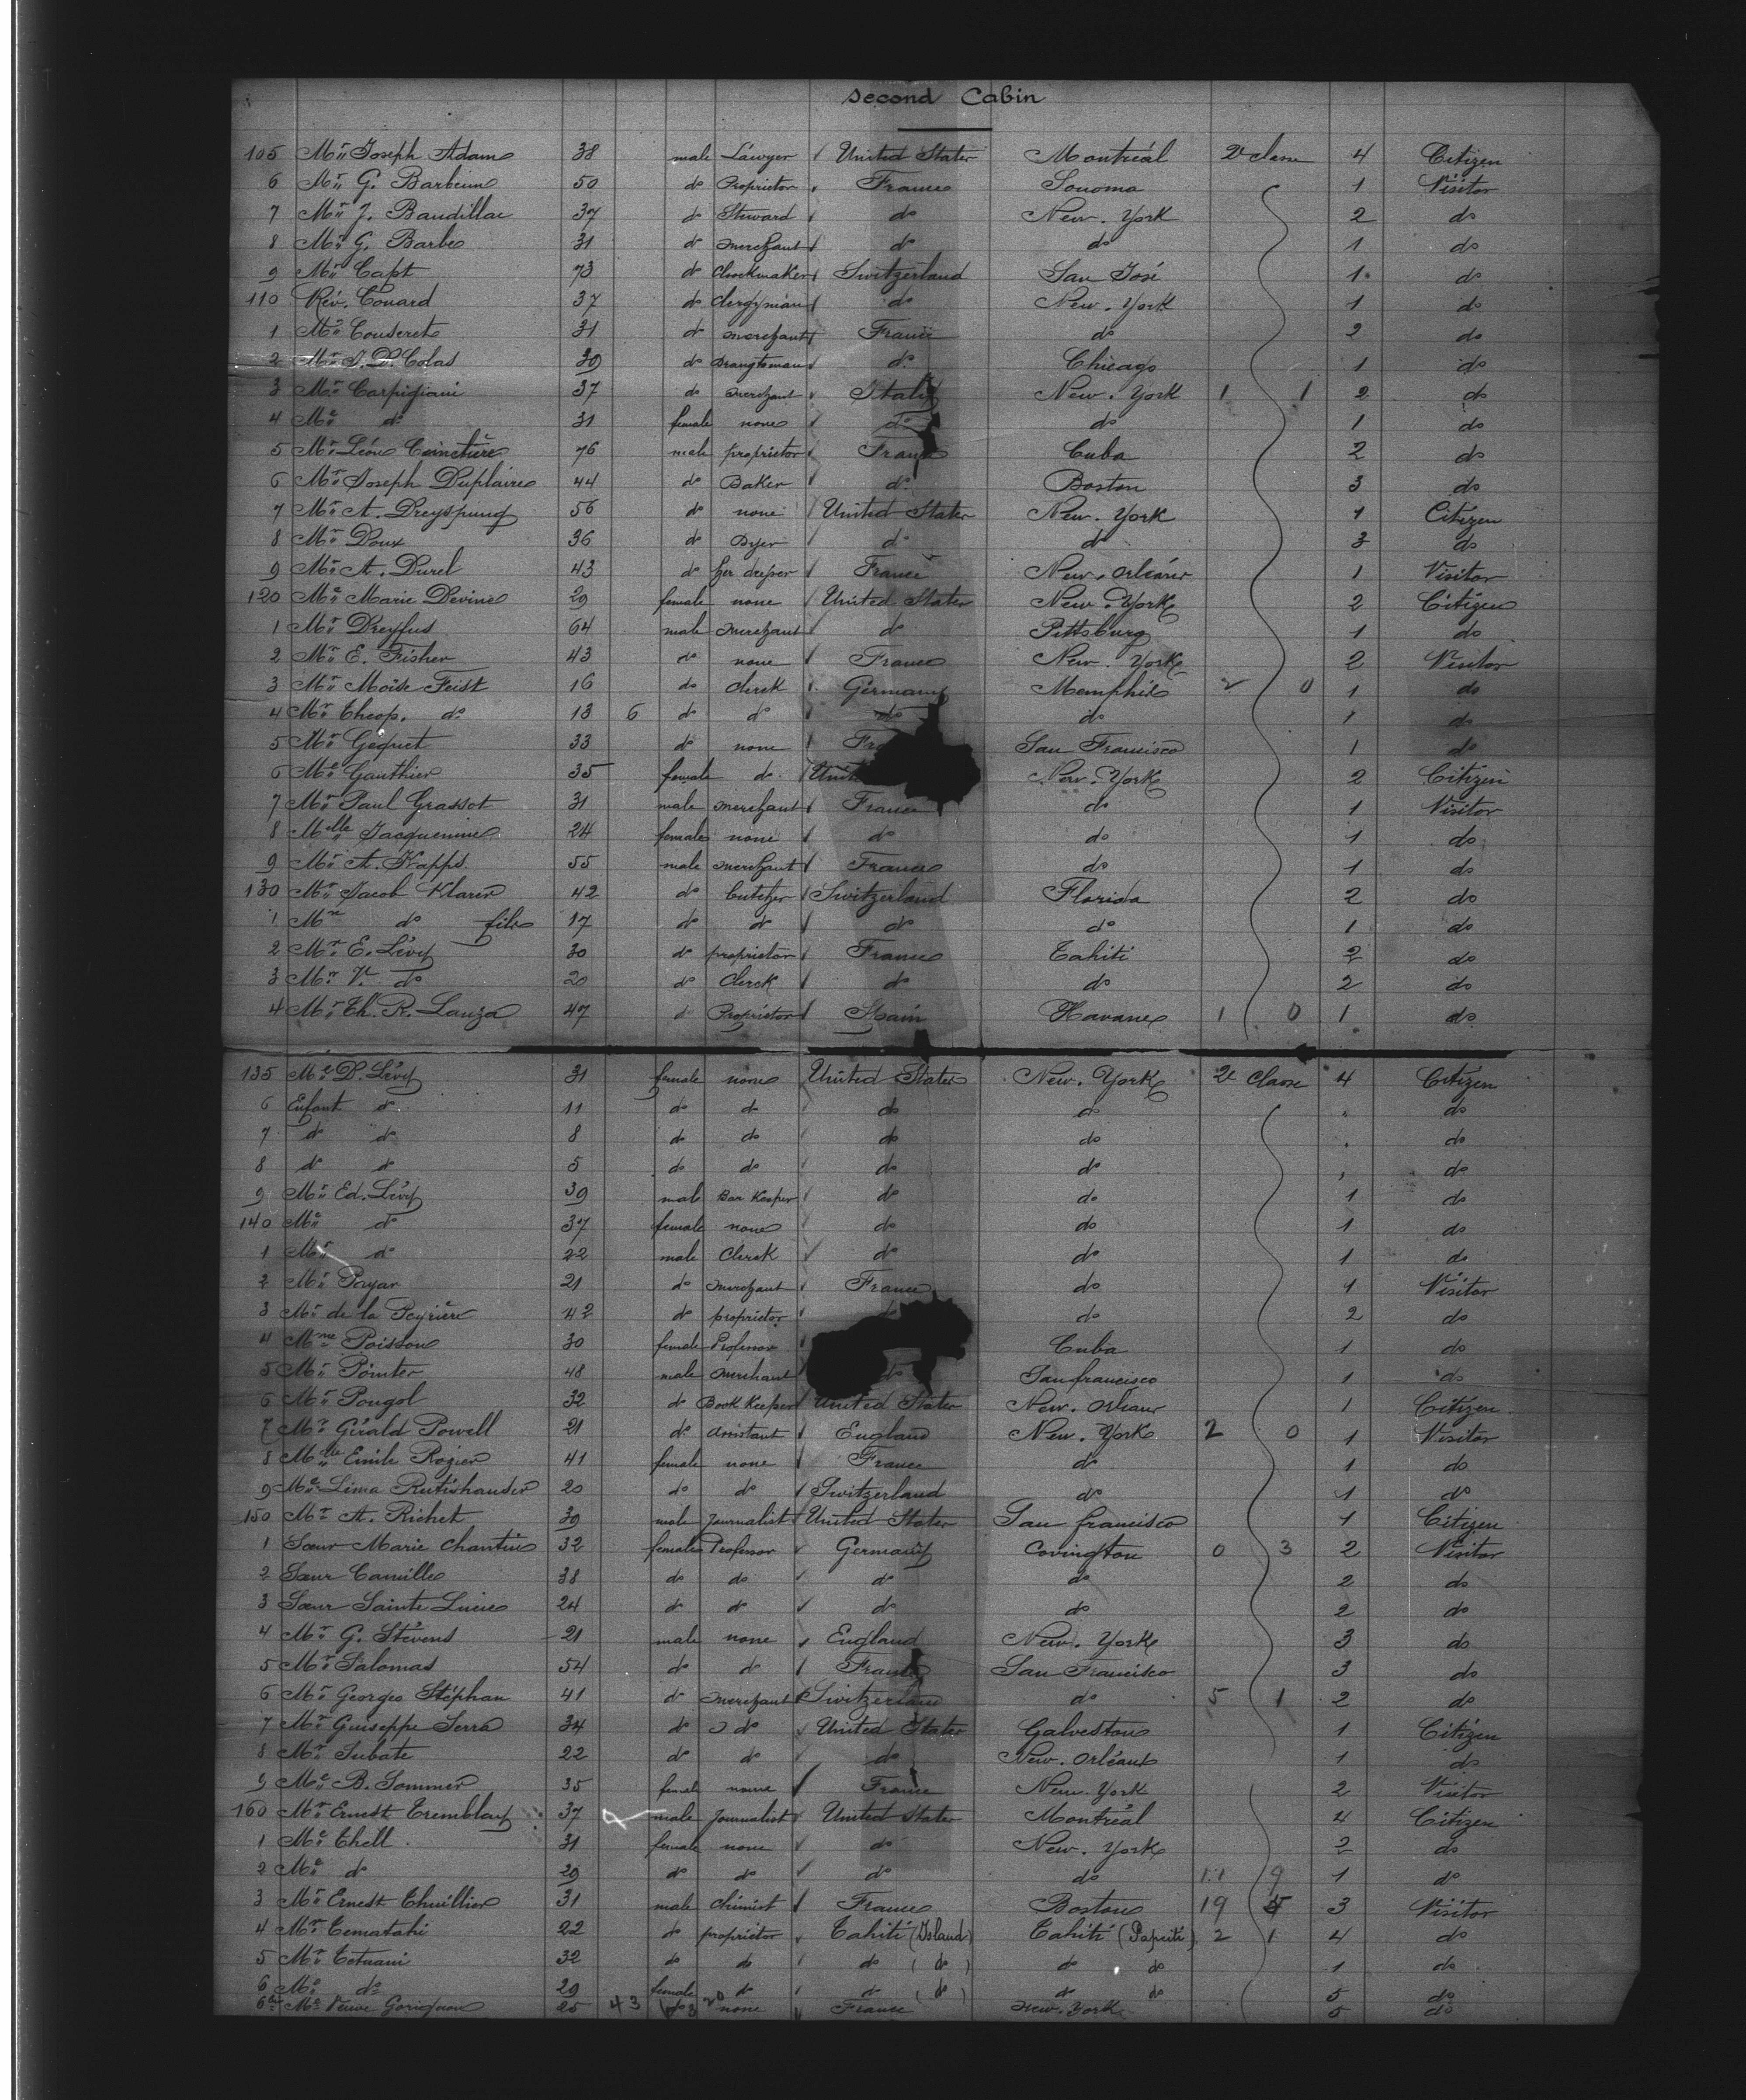 Second Cabin
105 Mr Joseph Adam 38 male Lawyer United States Montréal 2e classe 4 Citizen
6 Mr G. Barbeun 50 do Proprietor France Sonoma 1 Visitor
7 Mr J. Baudillac 37 do Steward do New-York 2 do
8 Mr G. Barbe 31 do merchant do do 1 do
9 Mr Capt 73 do Clockmaker Switzerland San José 1 do
110 Rév. Couard 37 do clergyman do New-York 1 do
1 Mr Couseret 31 do merchant France do 2 do
2 Mr A. D. Colas 39 do Draugtsman do Chicago 1 do
3 Mr Carpigiani 37 do merchant Italy New-York 1 1 2 do
4 Me do 31 female none do do 1 do
5 Mr Léon 76 male proprietor France Cuba 2 do
6 Mr Joseph Duplaire 44 do Baker do Boston 3 do
7 Mr A. Dreyspung 56 do none United States New-York 1 Citizen
8 Mr Doux 36 do Dyer do do 3 do
9 Mr A. Durel 43 do France New-Orléans 1 Visitor
120 Me Marie Devine 29 female none United States New-York 2 Citizen
1 Mr Dreyfus 64 male merchant do Pittsburg 1 do
2 Mr E. Fisher 43 do none France New-York 2 Visitor
3 Mr Moïse Feist 16 do Clerck Germany Memphis 2 0 1 do
4 Mr Theop. do 13 6 do do do do 1 do
5 Mr Gequet 33 do none Fra San Francisco 1 do
6 Me Gauthier 35 female do Unit New-York 2 Citizen
7 Mr Paul Grassot 31 male merchant France do 1 Visitor
8 Melle Jacquemine 24 female none do do 1 do
9 Mr A. Kapps 55 male merchant France do 1 do
130 Mr Jacob Klarer 42 do butcher Switzerland Florida 2 do
1 Mr do fils 17 do do do do 1 do
2 Mr E. Lévy 30 do proprietor France Tahiti 2 do
3 Mr V. do 20 do Clerck do do 2 do
4 Mr Th. R. Lanza 47 d Proprietor Spain Havane 1 0 1 do
135 Me D. Lévy 31 female none United States New-York 2e Classe 4 Citizen
6 Enfant do 11 do do do do " do
7 do do 8 do do do do " do
8 do do 5 do do do do " do
9 Mr Ed. Lévy 39 male Bar Keeper do do 1 do
140 Me do 37 female none do do 1 do
1 Mr do 22 male Clerck do do 1 do
2 Mr Payar 21 do merchant France do 1 Visitor
3 Mr de la Peyrière 42 do proprietor do do 2 do
4 Mme Poisson 30 female Professor Cuba 1 do
5 Mr Pointer 48 male merchant do Sanfrancisco 1 do
6 Mr Pougol 32 do Book Keeper United States New-Orleans 1 Citizen
7 Mr Gérald Powell 21 do assistant England New-York 2 0 1 Visitor
8 Melle Emile Rozier 41 female none France do 1 do
9 Me Lima Rutishauser 20 do do Switzerland do 1 do
150 Mr A. Richet 39 male Journalist United States San francisco 1 Citizen
1 Sœur Marie Chantin 32 female Professor Germany Covington 0 3 2 Visitor
2 Sœur Camille 38 do do do do 2 do
3 Sœur Sainte Lucie 24 do do do do 2 do
4 Mr G. Stévens 21 male none England New-York 3 do
5 Mr Salomas 54 do do France San Francisco 3 do
6 Mr Georges Stéphan 41 do merchant Switzerland do 5 1 2 do
7 Mr Guiseppe Serra 34 do do United States Galveston 1 Citizen
8 Mr Subate 22 do do do New-Orléans 1 do
9 Me B. Sommer 35 female none France New-York 2 Visitor
160 Mr Ernest Tremblay 37 male Journalist United States Montréal 4 Citizen
1 Me Thell 31 female none do New-York 2 do
2 Me do 29 do do do do 11 9 1 do
3 Mr Ernest Thuillier 31 male chimist France Boston 19 5 3 Visitor
4 Mr Tematahi 22 do proprietor Tahiti (Island) Tahiti (Papeiti) 2 1 4 do
5 Mr Tetuani 32 do do do (do) do do 1 do
6 Me do 29 female do do (do) do do 5 do
6bis Me Veuve 25 43 20 none France New-York 5 do